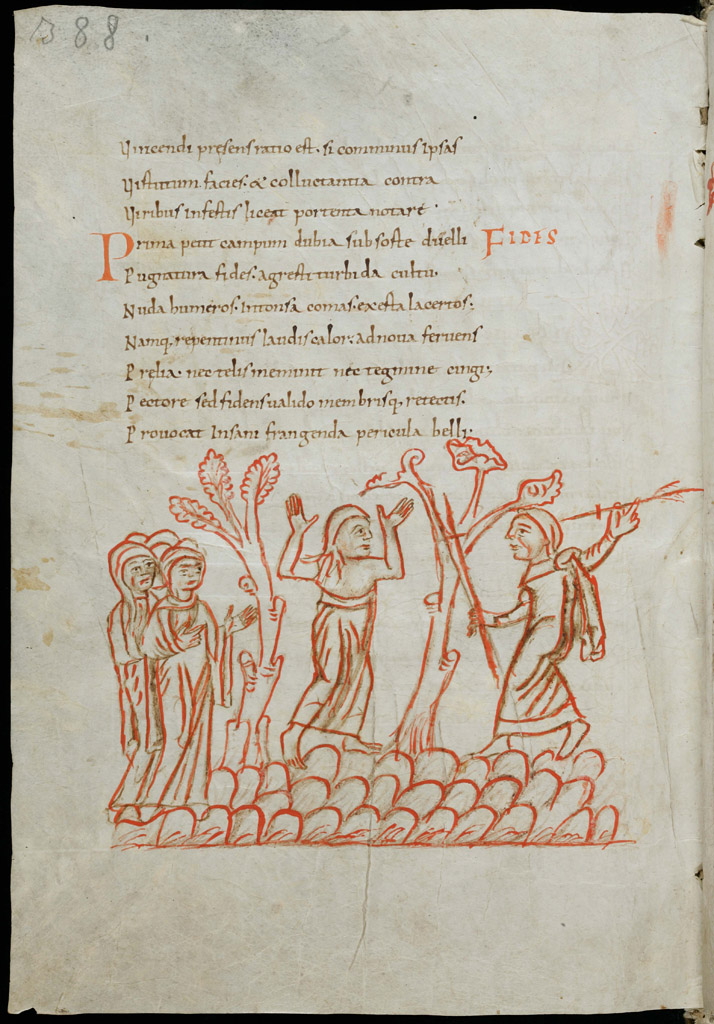 388.
Vincendi pręsens ratio est. si comminus ipsas
Virtutum. facies. & colluctantia contra
Viribus infestis liceat portenta notare.
Prima petit campum dubia sub sorte duelli FIDES
Pugnatura fides. agresti turbida cultu.
Nuda humeros. intonsa comas. exerta lacertos;
Namq. repentinus laudis calor. ad noua feruens
Prelia. nec telis meminit nec tegmine cingi;
Pectore sed fidens ualido membrisq, retectis.
Prouocat insani frangenda pericula belli;